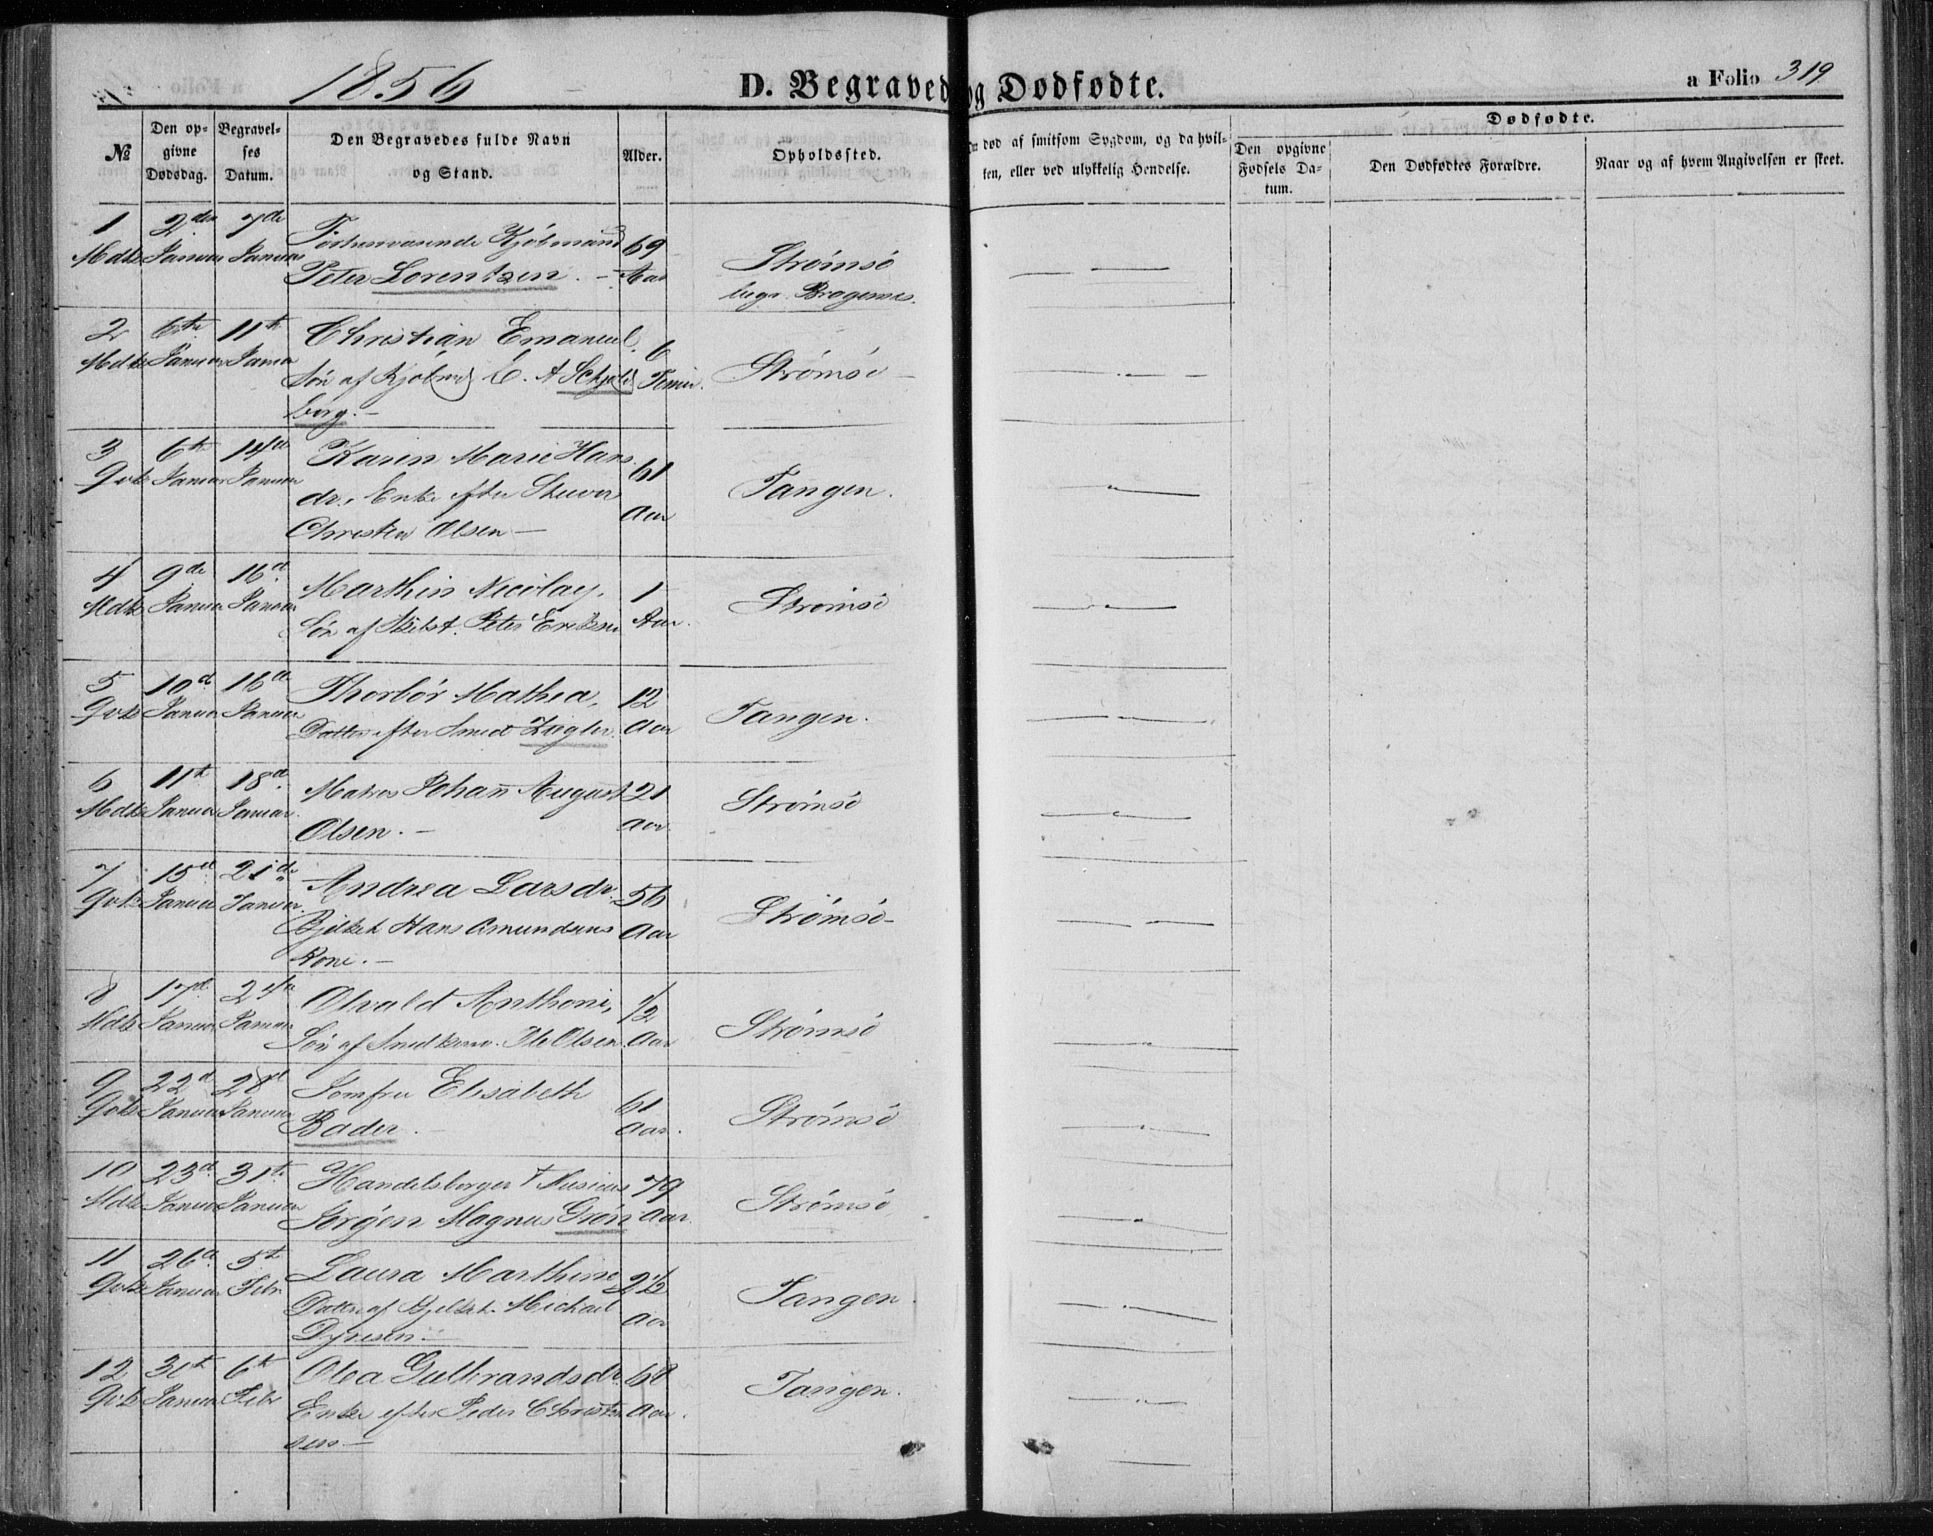 1856
D. Begravede og Dødfødte.
a Folio 319
Dødfødte.
№
Den opgivne Dødsdag.
Begravelses Datum.
Den Begravedes fulde Navn og Stand.
Alder.
Opholdssted.
død af smitsom Sygdom, og da hvilken, eller ved ulykkelig Hendelse.
Den opgivne Fødsels Datum.
Den Dødfødtes Forældre.
Naar og af hvem Angivelsen er skeet.
1 2den 7de
Mdk Januar Januar
Forhenværende Kjøbmand 69
Peter Lorentzen. — Aar
Strømsø
begr. Bragernes.
2 6te 11te
Mdk Januar Januar
Christian Emanuel. 6
Søn af Kjøbmd C. A Schjold Timer.
borg. —
Strømsø
3 6te 14de
Qvk Januar Januar
Karin Marie Hans 61
dr, Enke efter Stuver Aar
Christen Olsen —
Tangen.
4 9de 16de
Mdk Januar Januar
Marthin Nicolay, 1
Søn af Peter Eriksen Aar.
Strømsø
5 10de 16de
Qvk Januar Januar
Thorbør Mathea, 12
Datter efter Smed Zigler. Aar
Tangen.
6 11te 18de
Mdk Januar Januar.
Matros Johan August 21
Olsen. — Aar
Strømsø
7 15de 21de
Qvk Januar Januar.
Andrea Larsdr. 56
Hans Amundsens Aar
Kone. —
Strømsø
8 17de 24de
Mdk Januar Januar
Anthoni, 1/2
Søn af Olsen Aar
Strømsø
9 22de 28de
Qvk Januar Januar
Jomfru Elisabeth 61
Bader. — Aar.
Strømsø
10 23de 31te
Mdk Januar Januar
Handelsborger 79
Jørgen Magnus Grøn Aar.
Strømsø
11 26de 5te
Qvk Januar Febr
Laura Marthine 2 1/2
Datter af Michael Aar
Dyresen. —
Tangen.
12 31te 6te
Qvk Januar Febr
Olea Gulbrandsdr. 68
Enke efter Peder Christen Aar.
sen —
Tangen.